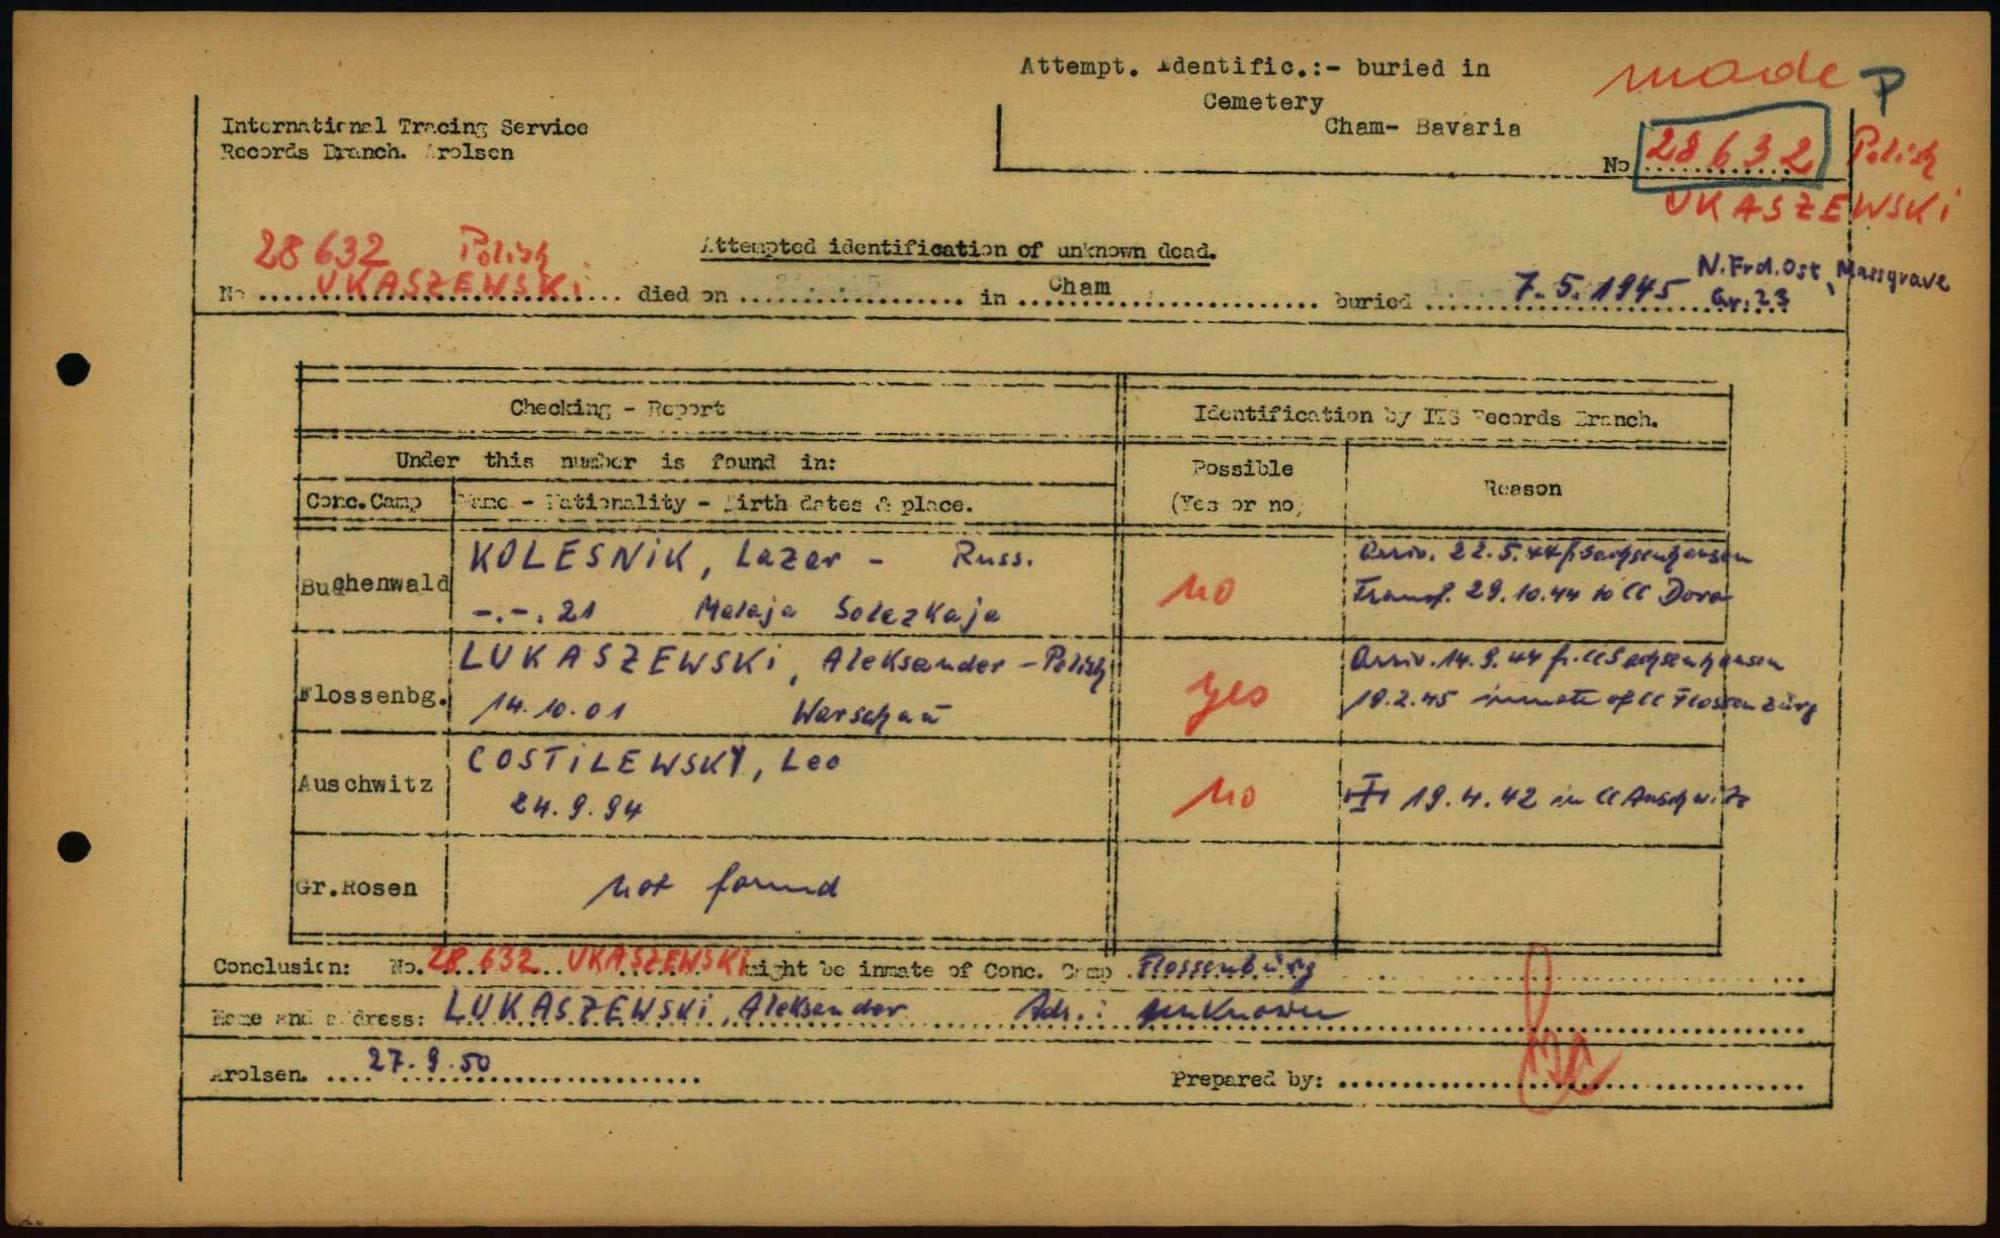 Attempt. Identific.:- buried in
Cemetery
Cham- Bavaria
made P
International Tracing Service
Records Branch. Arolsen
No 28632 Polish
UKASZEWSKi
28632 Polish
Attempted identification of unknown dead.
No UKASZEWSKi died on in Cham buried 7.5.1945 N.Frd.Ost, Massgrave
Gr.23
Checking - Report
Identification by ITS Records Branch.
Under this number is found in:
Possible
(Yes or no)
Reason
Conc.Camp Name - Nationality - Birth dates & place.
Buchenwald
KOLESNiK, Lazar - Russ.
-.-.21 Malaja Solezkaja
no
Arriv. 22.5.44 f. Sachsenhausen
Transf. 29.10.44 to CC Dora
Flossenbg.
LUKASZEWSKi, Aleksander - Polish
14.10.01 Warschau
yes
Arriv. 14.9.44 fr. CC Sachsenhausen
19.2.45 inmate of CC Flossenbürg
Auschwitz
COSTiLEWSKY, Leo
24.9.94
no
19.4.42 in CC Auschwitz
Gr.Rosen
not found
Conclusion: No. 28632 UKASZEWSKi might be inmate of Conc. Camp Flossenbürg
Name and address: LUKASZEWSKi, Aleksander Adr.: unknown
Arolsen. 27.9.50
Prepared by: